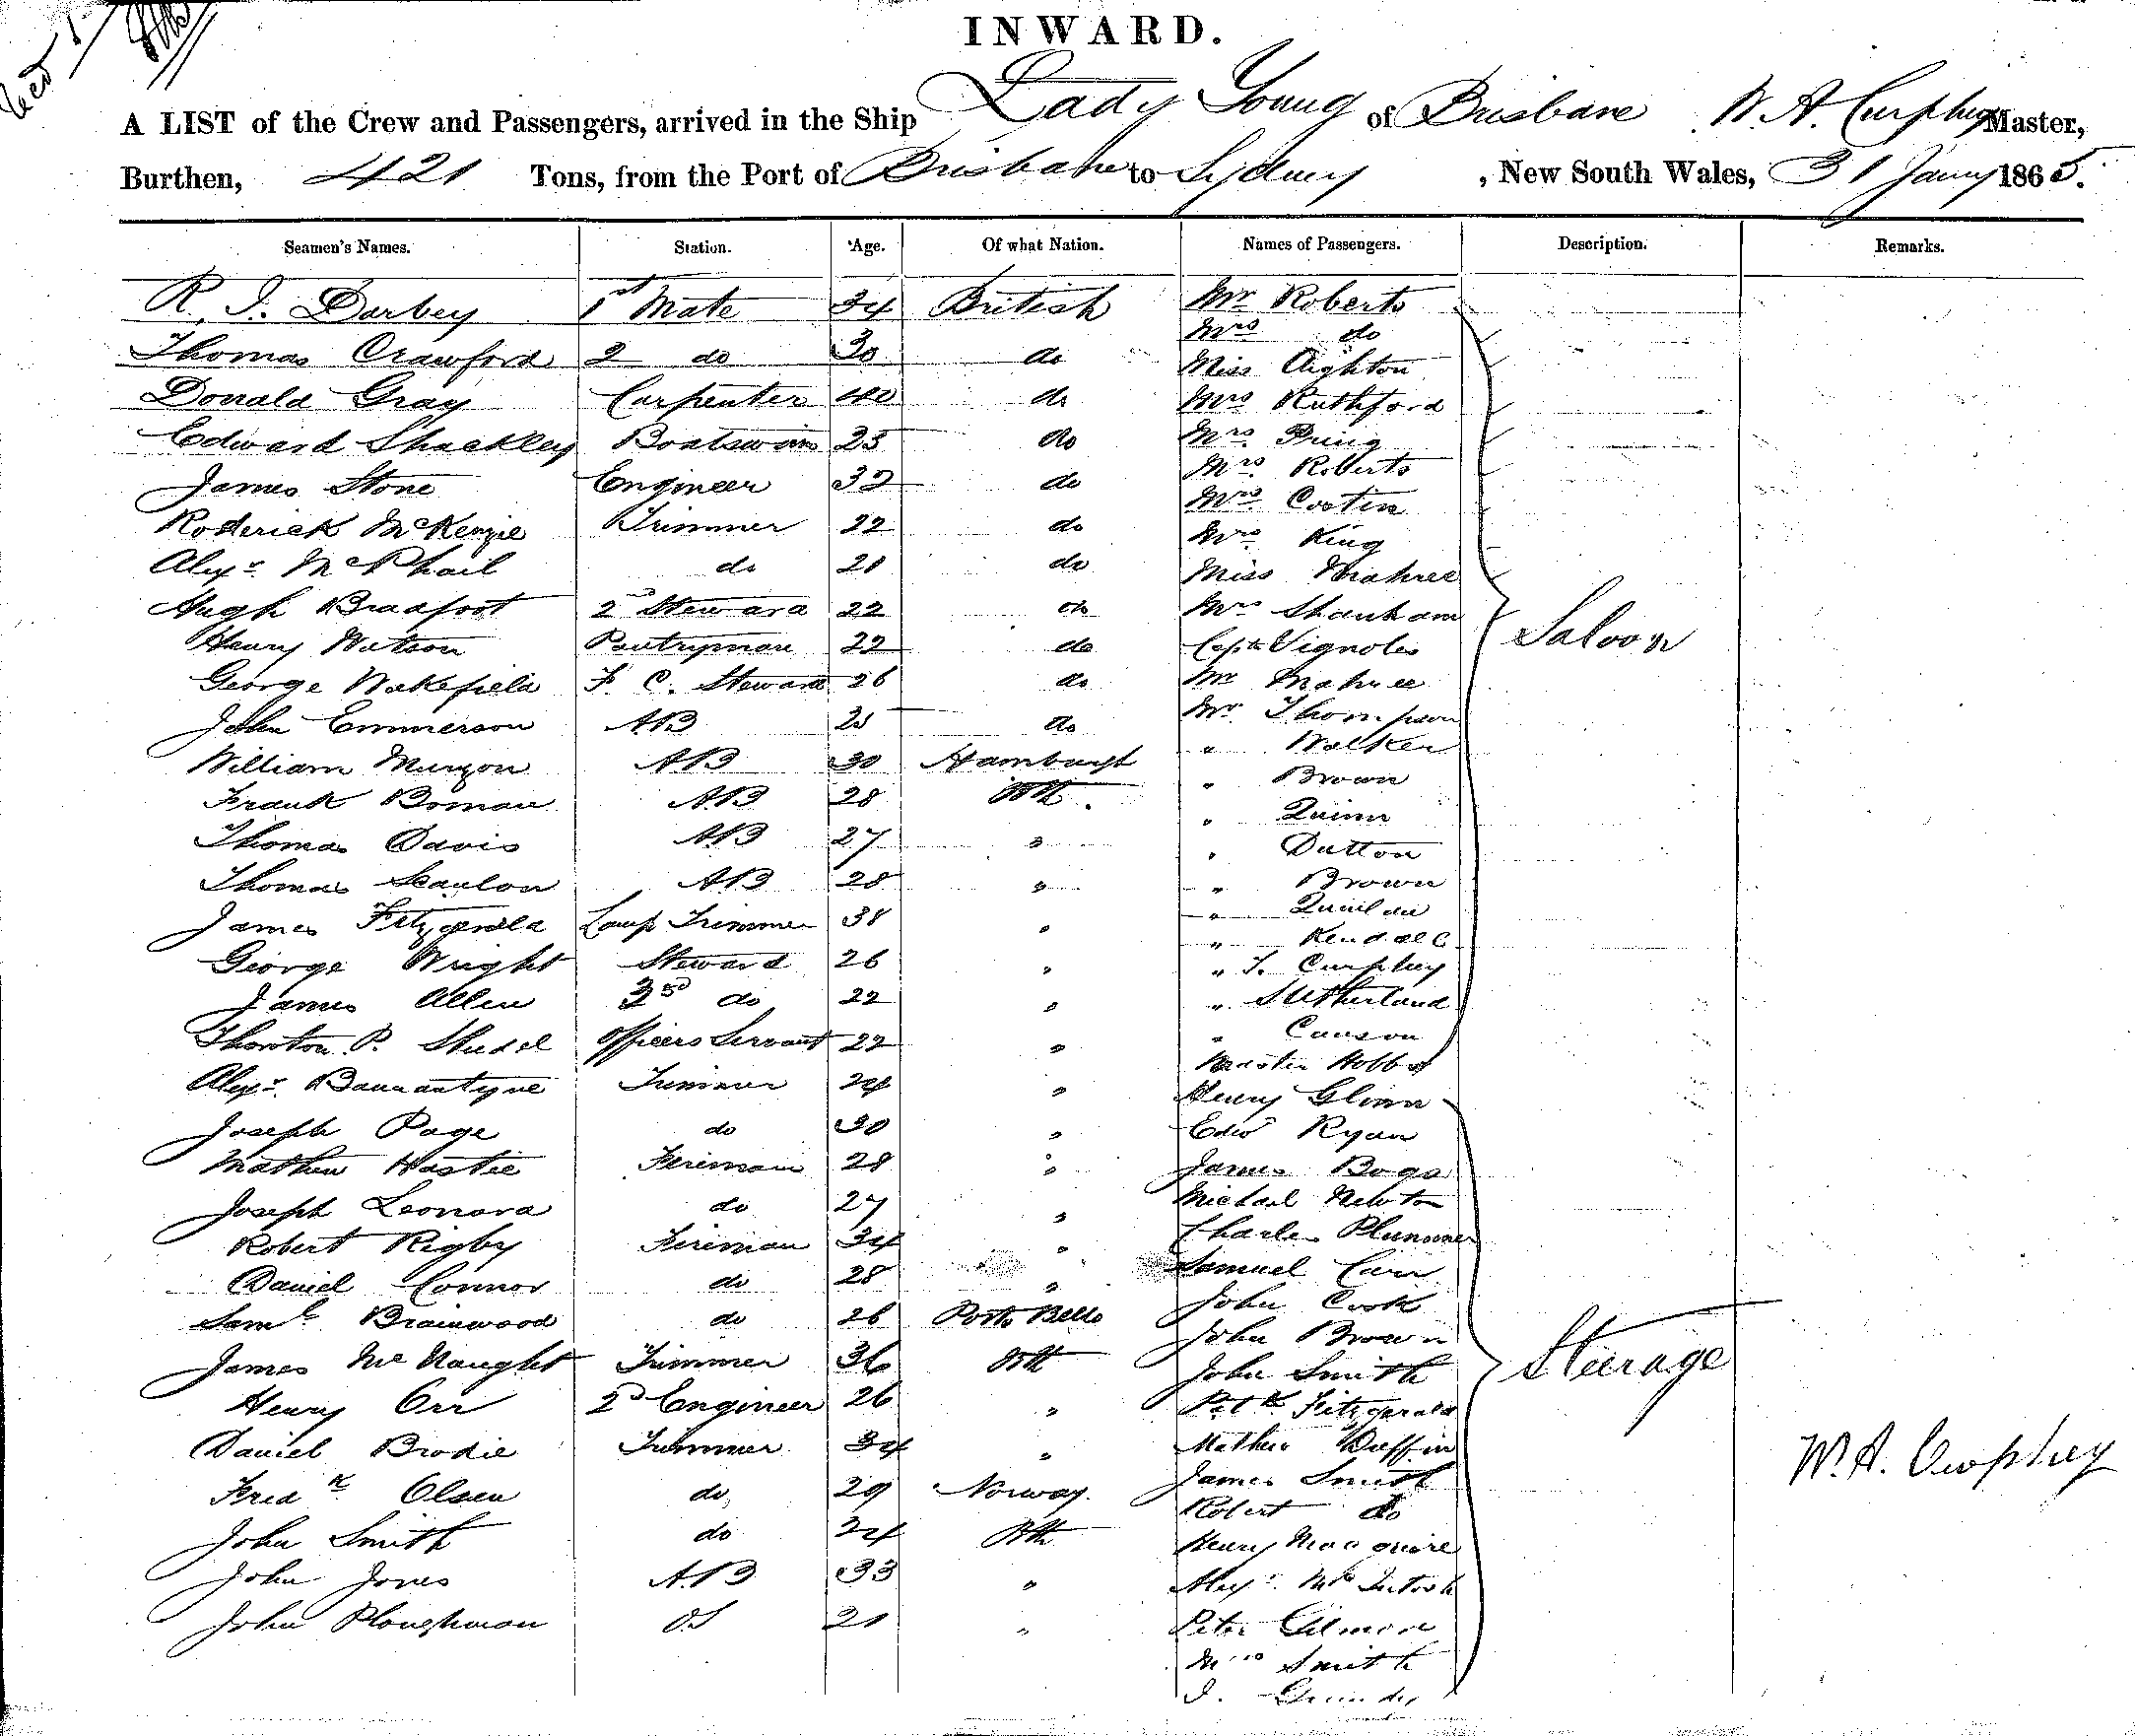 INWARD.
A LIST of the Crew and Passengers, arrived in the Ship Lady Young of Brisbane W. A. Curphey Master,
Burthen, 421 Tons, from the Port of Brisbane to Sydney, New South Wales, 31 Jany 1865.
Seamen's Names. Station. Age. Of what Nation. Names of Passengers. Description. Remarks.
R. J. Darbey 1st Mate 34 British Mr Roberts
Mrs do
Thomas Crawford 2 do 30 do Miss Aighton
Donald Gray Carpenter 40 do Mrs Ruthford
Edward Shackley Boatswain 25 do Mrs Pring
Mrs Roberts
James Stone Engineer 32 do Mrs Costin
Roderick McKenzie Trimmer 22 do Mrs King
Alexr McPhail do 21 do Miss Mahree
Hugh Bradfoot 2d Steward 22 do Mrs Shanham
Saloon
Henry Watson Pantryman 22 do Capt Vignoles
George Wakefield F. C. Steward 26 do Mr Mahree
John Emmerson AB 21 do Mr Thompson
William Munzon AB 30 Hamburgh " Walker
Frank Boman AB 28 Bth. " Brown
" Quinn
Thomas Davis AB 27 " " Dutton
Thomas Scanlon AB 28 " " Brown
James Fitzgerald Lamp Trimmer 38 "
" Kendall
George Wright Steward 26 " " J. Curphey
James Allen 3rd do 22 " " Sutherland
Thornton P. officers Servant 22 " " Canson
Master Hobbs
Alexr Bannantyne Trimmer 24 " Henry Glinn
Joseph Page do 30 " Edwd Ryan
Mathew Hastie Fireman 28 " James Boga
Joseph Leonard do 27 " Michael Newton
Robert Rigby Fireman 34 " Charles Plummer
Daniel Connor do 28 " Samuel Carr
Saml Brainwood do 26 Porto Bello John Cook
John Brown
James McNaught Trimmer 36 Bth John Smith
Steerage
Henry Orr 2d Engineer 26 " Patk Fitzgerald
Daniel Brodie Trimmer 34 " Mathew Duffin
W. A. Curphey
Fredk Olsen do 29 Norway. James Smith
Robert do
John Smith do 24 Bth Henry Macquire
John Jones A.B 33 " Alexr McIntosh
John Ploughman OS 21 " Peter Gilmore
Mrs Smith